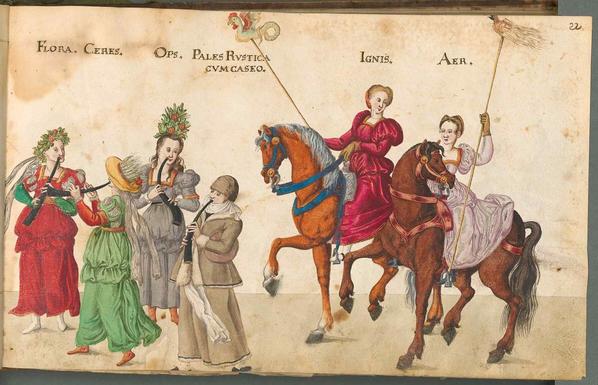 22
FLORA. CERES. OPS. PALES RVSTICA IGNIS. AER.
CVM CASEO.